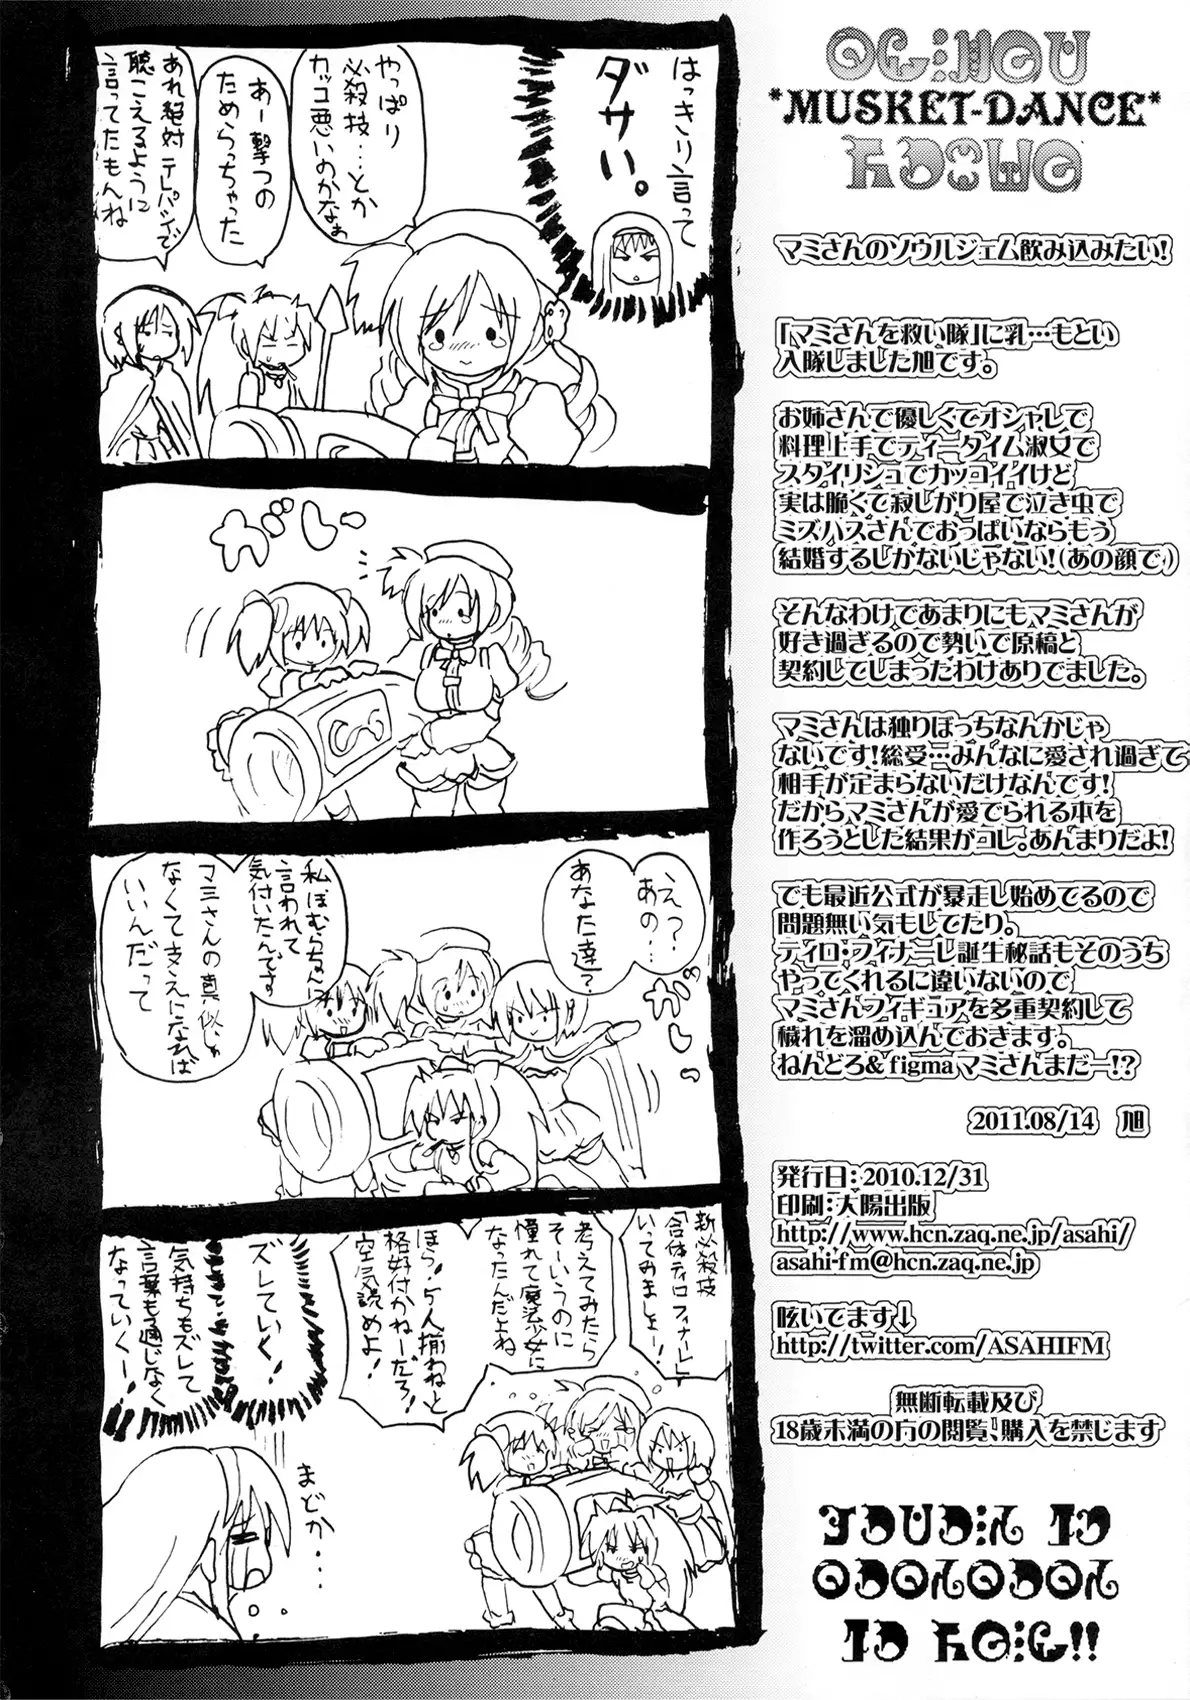 *MUSKET-DANCE*
マミさんのソウルジェム飲み込みたい!
「マミさんを救い隊」に乳…もとい
入隊しました旭です。
お姉さんで優しくてオシャレで
料理上手でティータイム淑女で
スタイリシュでカッコイイけど
実は脆くて寂しがり屋で泣き虫で
ミズハスさんでおっぱいならもう
結婚するしかないじゃない!(あの顔で)
そんなわけであまりにもマミさんが
好き過ぎるので勢いで原稿と
契約してしまったわけありでました。
マミさんは独りぼっちなんかじゃ
ないです!総受…みんなに愛され過ぎて
相手が定まらないだけなんです!
だからマミさんが愛でられる本を
作ろうとした結果がコレ。あんまりだよ!
でも最近公式が暴走し始めてるので
問題無い気もしてたり。
ティロ・フィナーレ誕生秘話もそのうち
やってくれるに違いないので
マミさんフィギュアを多重契約して
穢れを溜め込んでおきます。
ねんどろ&figmaマミさんまだー!?
2011.08/14 旭
発行日:2010.12/31
印刷:大陽出版
http://www.hcn.zaq.ne.jp/asahi/
asahi-fm@hcn.zaq.ne.jp
呟いてます↓
http://twitter.com/ASAHIFM
無断転載及び
18歳未満の方の閲覧、購入を禁じます
はっきり言って
ダサい。
やっぱり
必殺技…とか
カッコ悪いのかなぁ
あー撃つの
ためらっちゃった
あれ絶対テレパシーで
聴こえるように
言ってたもんね
がしっ
えっ?
あの…
あなた達?
がしっ
私ほむらちゃんに
言われて
気付いたんです
マミさんの真似じゃ
なくて支えになれば
いいんだって
新必殺技
「合体ティロフィナーレ」
いってみましょー!
考えてみたら
そーいうのに
憧れて魔法少女に
なったんだよね
ほら!5人揃ねーと
格好付かねーだろ!
空気読めよ!
ズレていく!
気持ちもズレて
言葉も通じなく
なっていくー!
まどか…